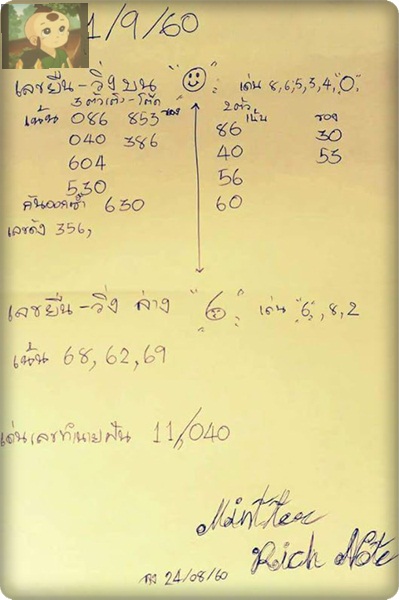 1/9/60
เลขยืน-วิ่งบน "☺" เด่น 8,6,5,3,4,"0"
3 ตัวเต็ง-โต๊ด 2 ตัว
เน้น 086 853 รอง เน้น รอง
040 386 86 30
604 40 53
530 56
630 60
เลขดัง 356,
เลขยืน-วิ่ง ล่าง "6" เด่น "6",8,2
เน้น 68, 62, 69
เด่นเลขทำนายฝัน 11,040
Rich Note
24/08/60